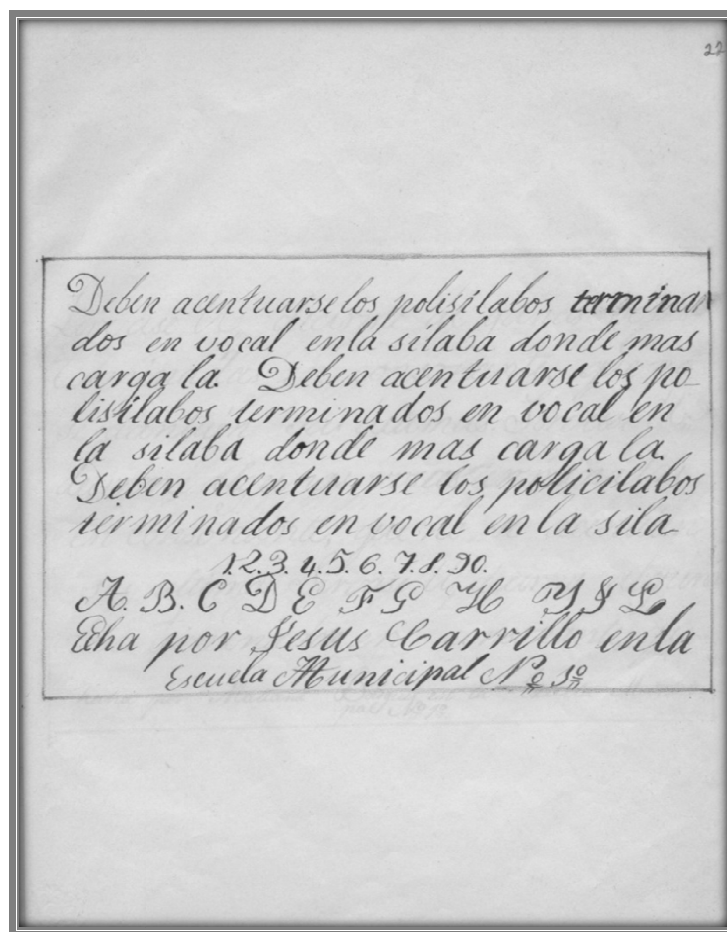 22
Deben acentuarse los polisilabos terminan
dos en vocal en la silaba donde mas
carga la. Deben acentuarse los po-
lisilabos terminados en vocal en
la silaba donde mas carga la.
Deben acentuarse los policilabos
terminados en vocal en la sila
1.2.3.4.5.6.7.8.90.
A. B. C D E F G H Y J L
Echa por Jesus Carrillo en la
Escuela Municipal Nº 10